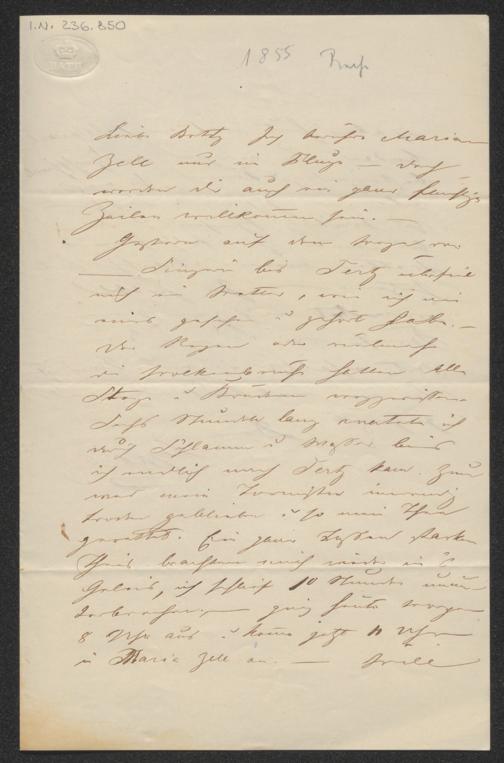 I.N. 236.850
BATH
1855
Liebe Betty Ich berühre Maria
Zell nur im Fluge — doch
werden dir auch ein paar flüchtige
Zeilen willkommen sein. —
Gestern auf dem Wege von
bis Tertz überfiel
mich ein Wetter, wie ich nie
eines gesehen u gehört habe. —
Der Regen oder vielmehr
die Wolkenbrüche hatten alle
Stege u Brücken weggerissen.
Sechs Stunden lang watete ich
durch Schlamm u Wasser bis
ich endlich nach Tertz kam. Zum
war mein Tornister inwendig
trocken geblieben u so mein
gerettet. Ein paar Tassen starken
Thees brachten mich wieder in's
Geleis, ich schlief 10 Stunden unun
terbrochen, — ging heute Morgen
8 Uhr aus u komme jetzt 11 Uhr
in Maria Zell an. —